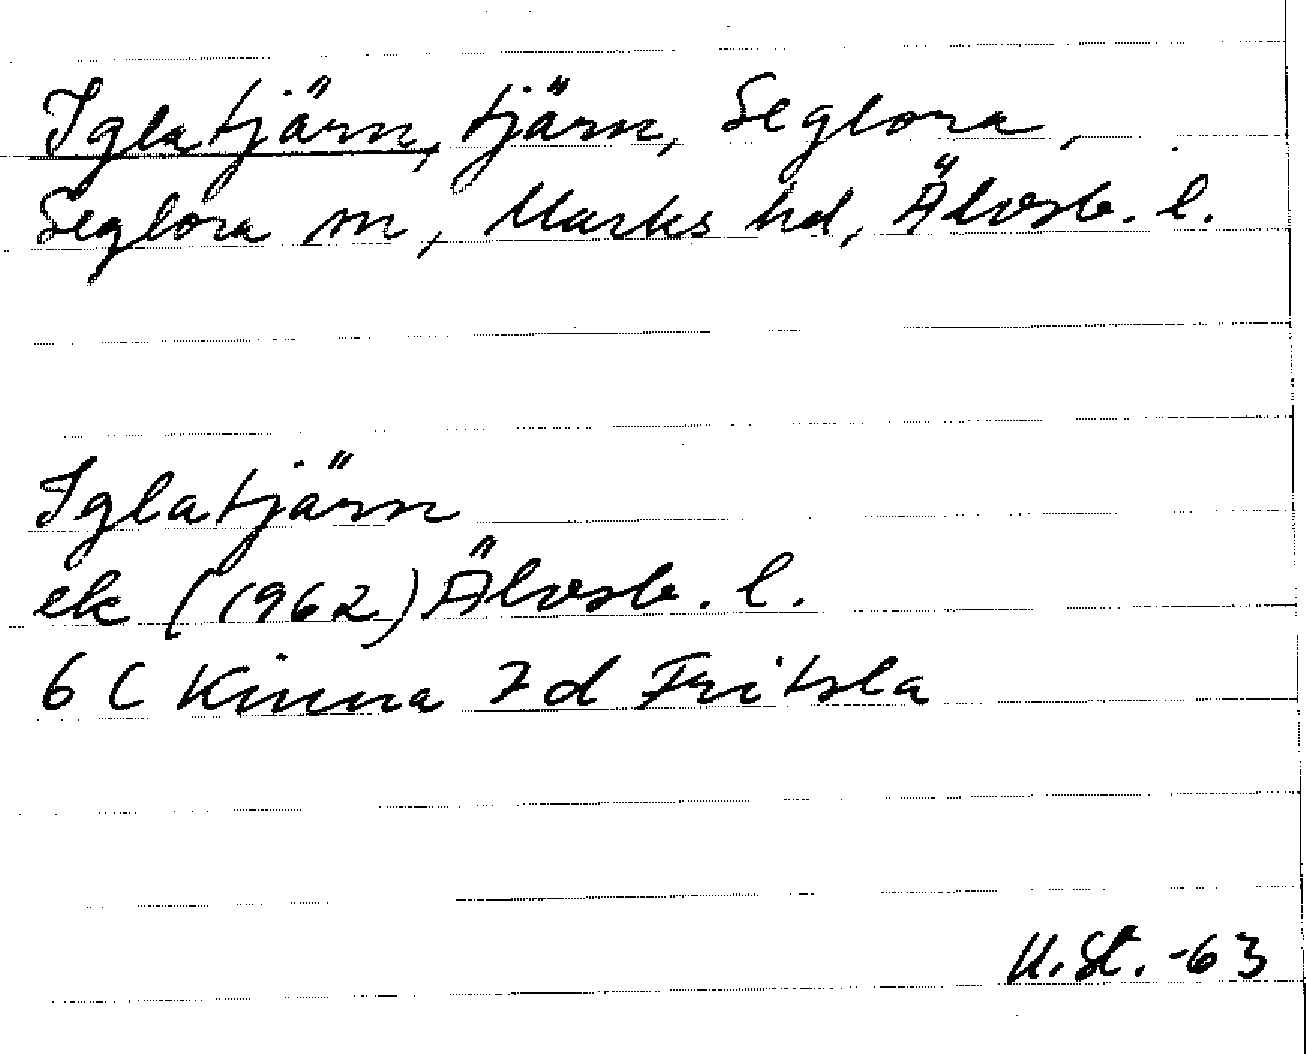 Iglatjärn, tjärn, Seglora,
Seglora sn, Marks hd, Älvsb. l.
Iglatjärn
ek (1962) Älvsb. l.
6 C Kinna 7 d Fritsla
U. St. -63